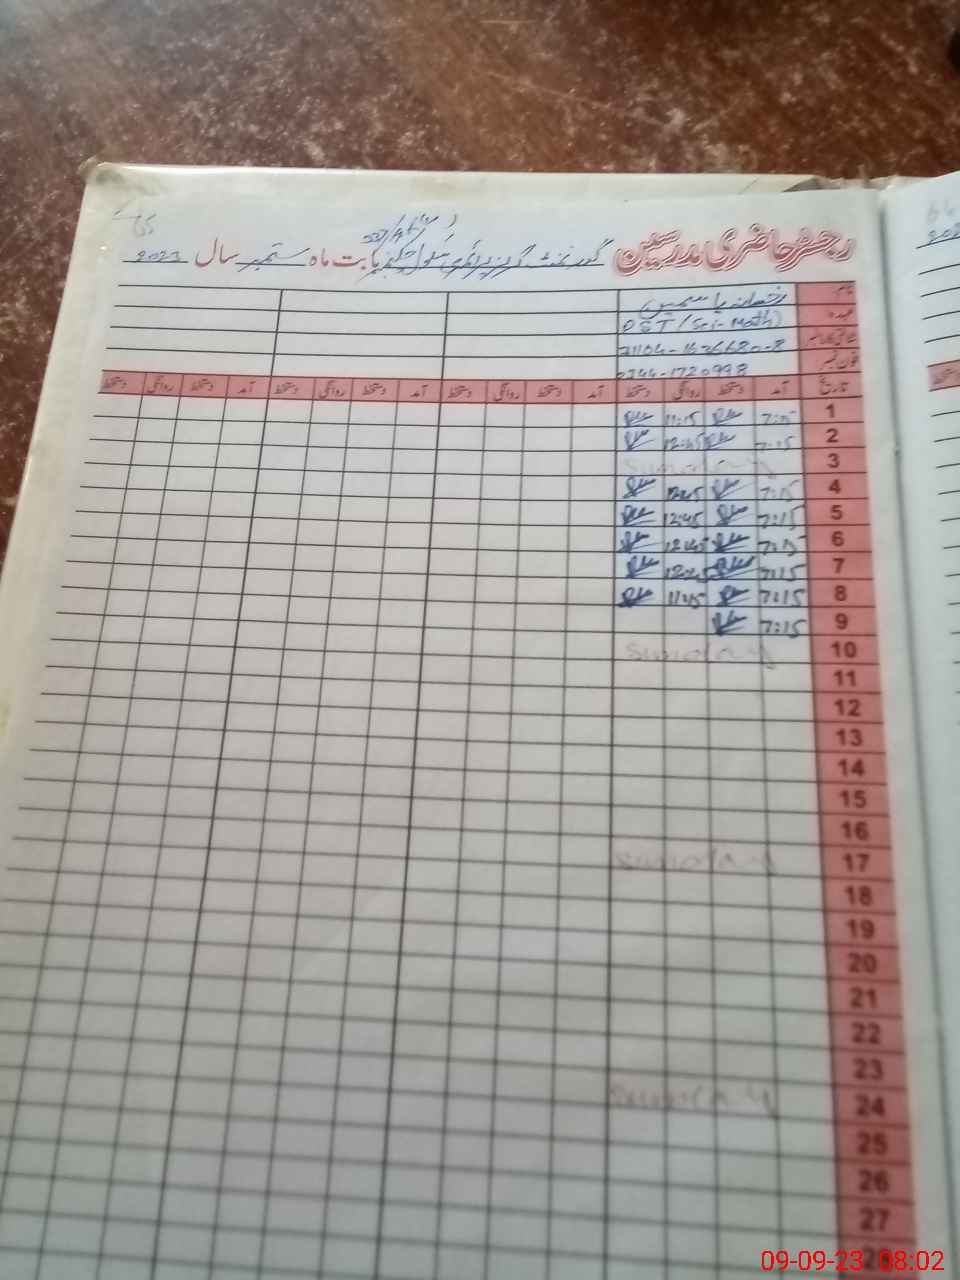 65
رجسٹر حاضری مدرسین گورنمنٹ گرلز پرائمری سکول بابت ماہ ستمبر سال 2023
نام رخسانہ یاسمین
عہدہ PST (Sci-Math)
شناختی کارڈ نمبر 31104-1636680-8
فون نمبر 0344-1720998
تاریخ آمد دستخط روانگی دستخط آمد دستخط روانگی دستخط آمد دستخط روانگی دستخط
1 7:15 11:15
2 7:15 12:45
3 Sunday
4 7:15 12:45
5 7:15 12:45
6 7:15 12:45
7 7:15 12:45
8 7:15 11:15
9 7:15
10 Sunday
11
12
13
14
15
16
17 Sunday
18
19
20
21
22
23
24 Sunday
25
26
27
09-09-23 08:02